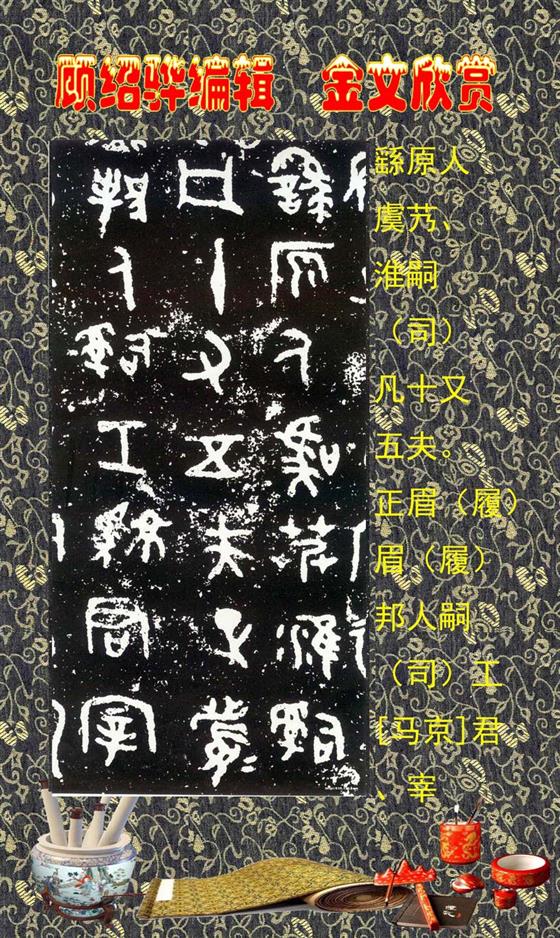 顾绍骅编辑 金文欣赏
繇原人
虞艿、
淮嗣
（司）
凡十又
五夫。
正眉（履）
眉（履）
邦人嗣
（司）工
[马京]君
、宰